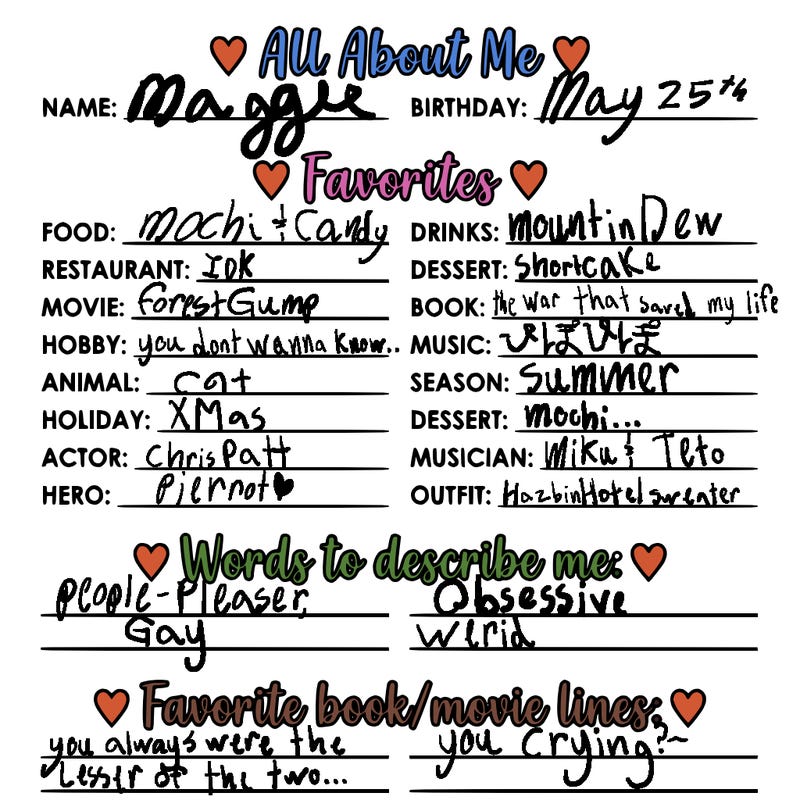 All About Me
NAME: Maggie BIRTHDAY: May 25th
Favorites
FOOD: mochi & Candy DRINKS: mountinDew
RESTAURANT: IDK DESSERT: shortcake
MOVIE: forestGump BOOK: the war that saved my life
HOBBY: you dont wanna know.. MUSIC: ひぽひぽ
ANIMAL: cat SEASON: summer
HOLIDAY: XMas DESSERT: mochi...
ACTOR: Chris Patt MUSICIAN: Miku & Teto
HERO: Pierrot♥ OUTFIT: HazbinHotel sweater
Words to describe me:
people-Pleaser, Obsessive
Gay Werid
Favorite book/movie lines:
you always were the you crying?~
Lesser of the two...